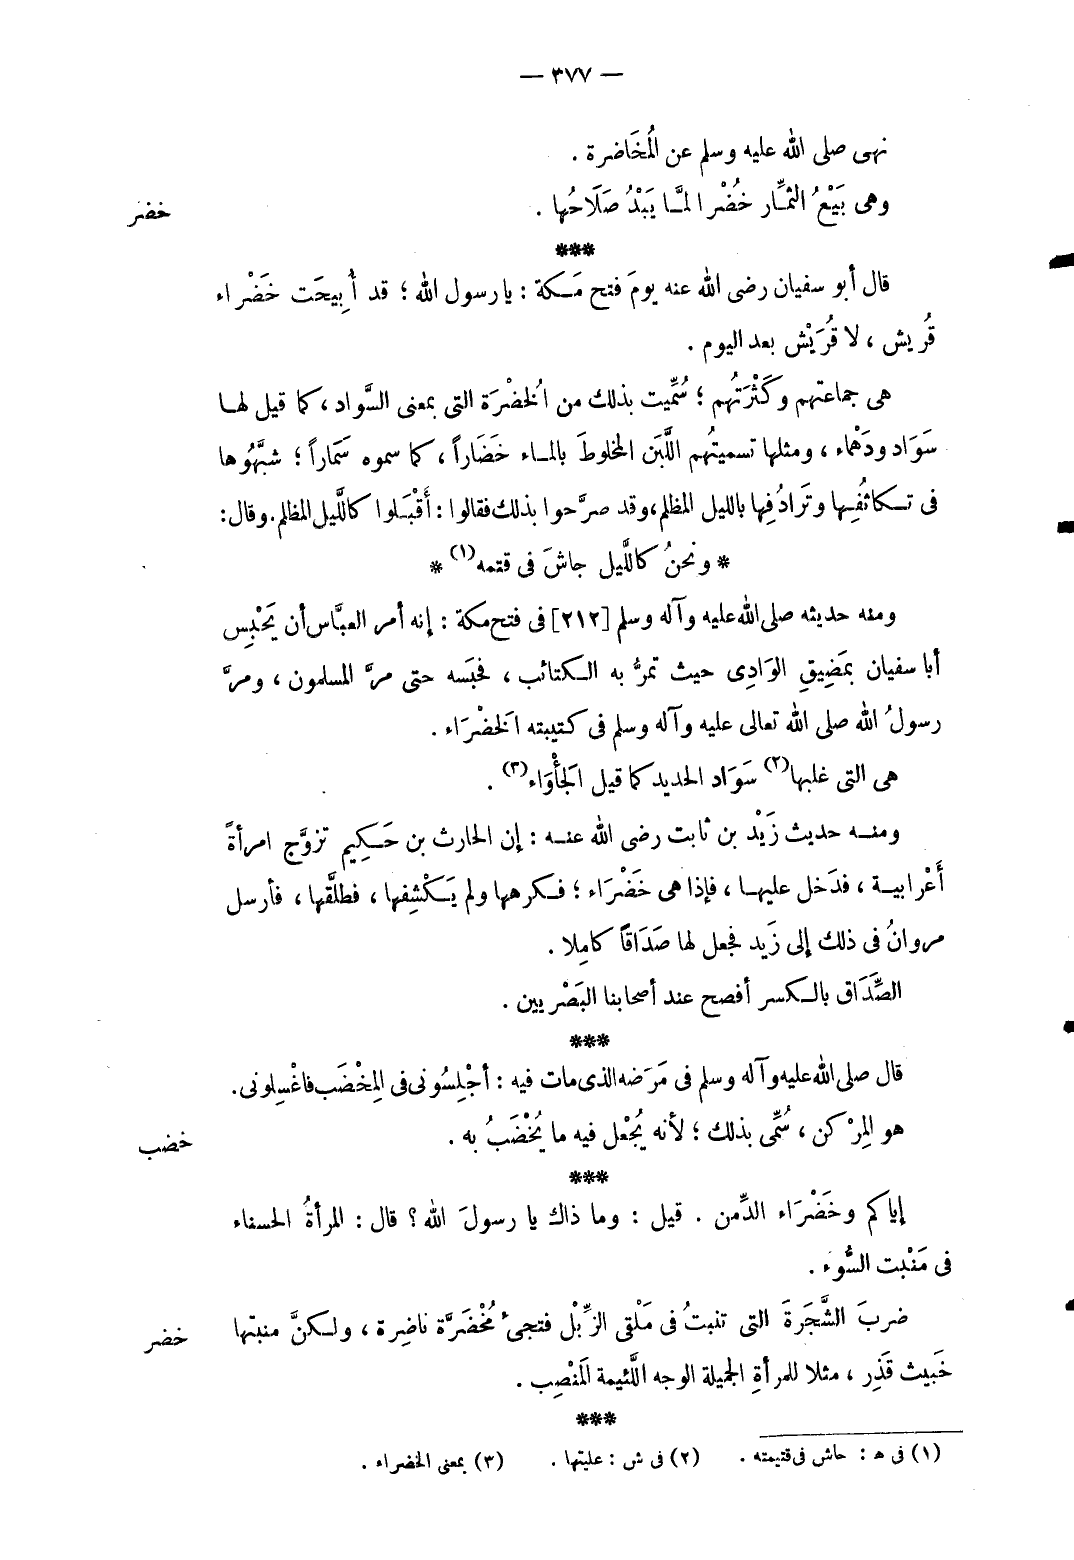 — ٣٧٧ —
نهى صلى الله عليه وسلم عن الُمخَاضرة .
وهى بَيْعُ الثمَّار خُضْرا لمَّا يَبْدُ صَلَاحُها .
خضر
***
قال أبو سفيان رضى الله عنه يومَ فتح مَكة : يارسول الله ؛ قد أُبِيحَت خَضْراء
قُريش ، لا قُرَيْش بعد اليوم .
هى جماعتهم وكَثْرَتُهم ؛ سُمِّيت بذلك من الُخضْرَة التى بمعنى السَّواد ، كما قيل لها
سَوَاد ودَهْماء ، ومثلها تسميتُهم اللَّبَن المخلوطَ بالماء خَضَاراً ، كما سموه سَمَاراً ؛ شبَّهُوها
فى تكاثُفِها وتَرادُفِها بالليل المظلم ، وقد صرَّحوا بذلك فقالوا : أَقْبَلوا كاللَّيل المظلم . وقال :
* ونحنُ كاللَّيل جاشَ فى قتمه (١) *
ومنه حديثه صلى الله عليه وآله وسلم [٢١٢] فى فتح مكة : إنه أمر العبَّاس أن يَحْبِس
أبا سفيان بمَضِيقِ الوَادِى حيث تمرُّ به الكتائب ، فحبَسه حتى مرَّ المسلمون ، ومرَّ
رسولُ الله صلى الله تعالى عليه وآله وسلم فى كتيبته الَخضْرَاء .
هى التى غلبها (٢) سَوَاد الحديد كما قيل الَجأْوَاء (٣) .
ومنه حديث زَيْد بن ثابت رضى الله عنه : إن الحارث بن حَكِيم تزوَّج امرأةً
أَعْرابية ، فدَخل عليها ، فإذا هى خَضْرَاء ؛ فكرهها ولم يَكْشِفها ، فطلَّقها ، فأرسل
مروانُ فى ذلك إلى زَيد فجعل لها صَدَاقاً كامِلا .
الصِّدَاق بالكسر أفصح عند أصحابنا البَصْريين .
***
قال صلى الله عليه وآله وسلم فى مَرَضه الذى مات فيه : أجْلِسُونى فى المِخْضَب فاغْسِلونى .
هو المِرْكن ، سُمِّى بذلك ؛ لأنه يُجْعل فيه ما يُخْضَبُ به .
خضب
***
إياكم وخَضْرَاء الدِّمن . قيل : وما ذاك يا رسولَ الله ؟ قال : المرأةُ الحسناء
فى مَنْبت السُّوء .
ضربَ الشَّجَرةَ التى تنبتُ فى مَلْقى الزِّبْل فتجىُ مُخْضَرَّة ناضِرة ، ولكنَّ منبتها
خضر
خَبيث قَذِر ، مثلا للمرأةِ الجميلة الوجه اللَّئيمة الَمنْصِب .
***
(١) فى ه : حاش فى قتيمته . (٢) فى ش : علبتها . (٣) بمعنى الخضراء .